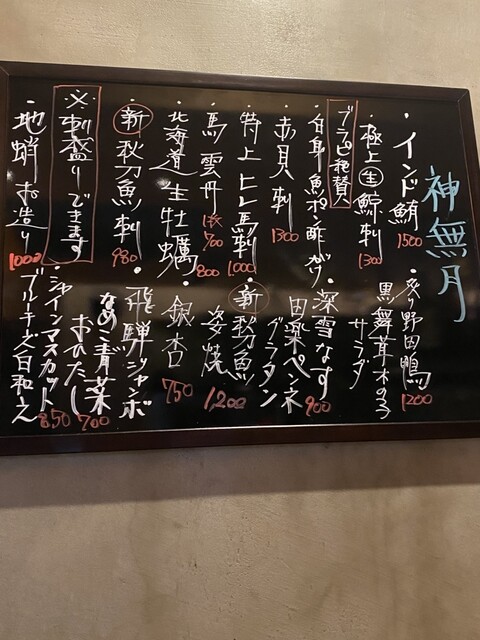 神無月
・インド鮪 1500
・極上生鯨刺 1300
ブラピ絶賛
・白身魚ポン酢がけ
・赤貝刺 1300
・特上ヒレ馬刺 1000
・馬雲丹 1枚700
・北海道生牡蠣 800
・新秋刀魚刺 980
※刺盛りできます
・地蛸お造り 1000
・炙り野田鴨 1200
黒舞茸木の子サラダ
・深雪なす
田楽ペンネ
グラタン 900
・新秋刀魚
姿焼 1,200
・銀杏 750
・飛騨ジャンボ
なめこ青菜
おひたし 700
・シャインマスカット
ブルーチーズ白和え 850